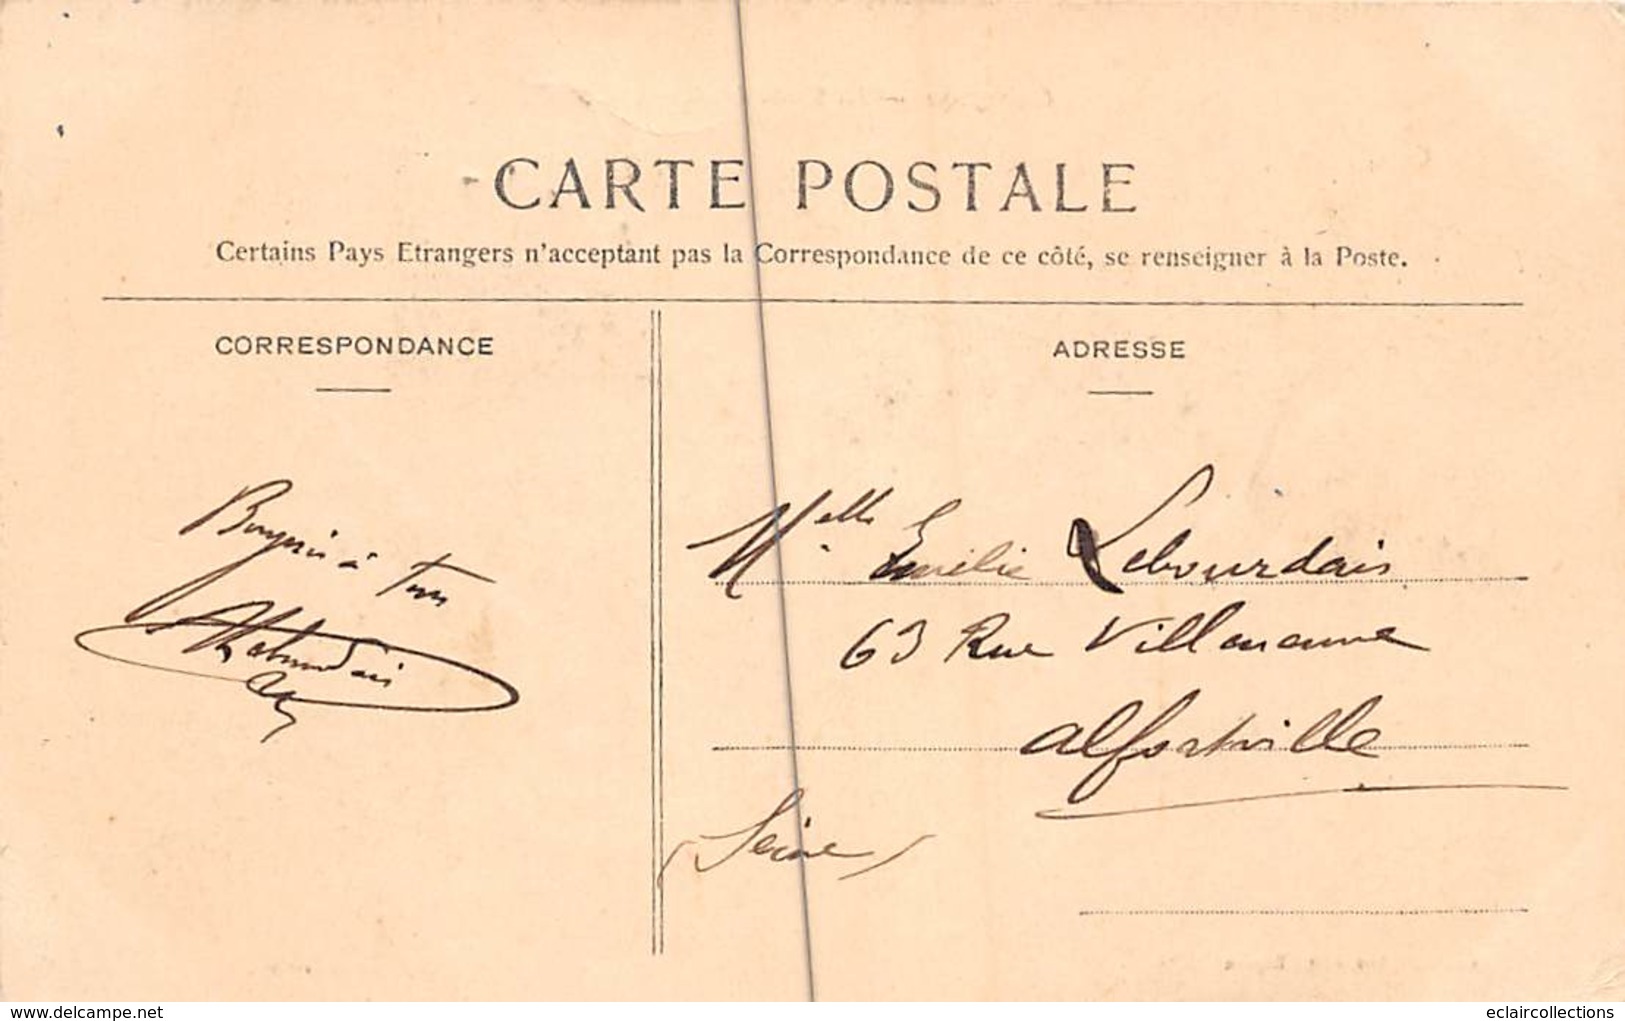 CARTE POSTALE
Certains Pays Etrangers n'acceptant pas la Correspondance de ce côté, se renseigner à la Poste.
CORRESPONDANCE
ADRESSE
à tous
Melle Emilie Lebourdais
63 Rue Villeneuve
Alfortville
(Seine)
www.delcampe.net
eclaircollections